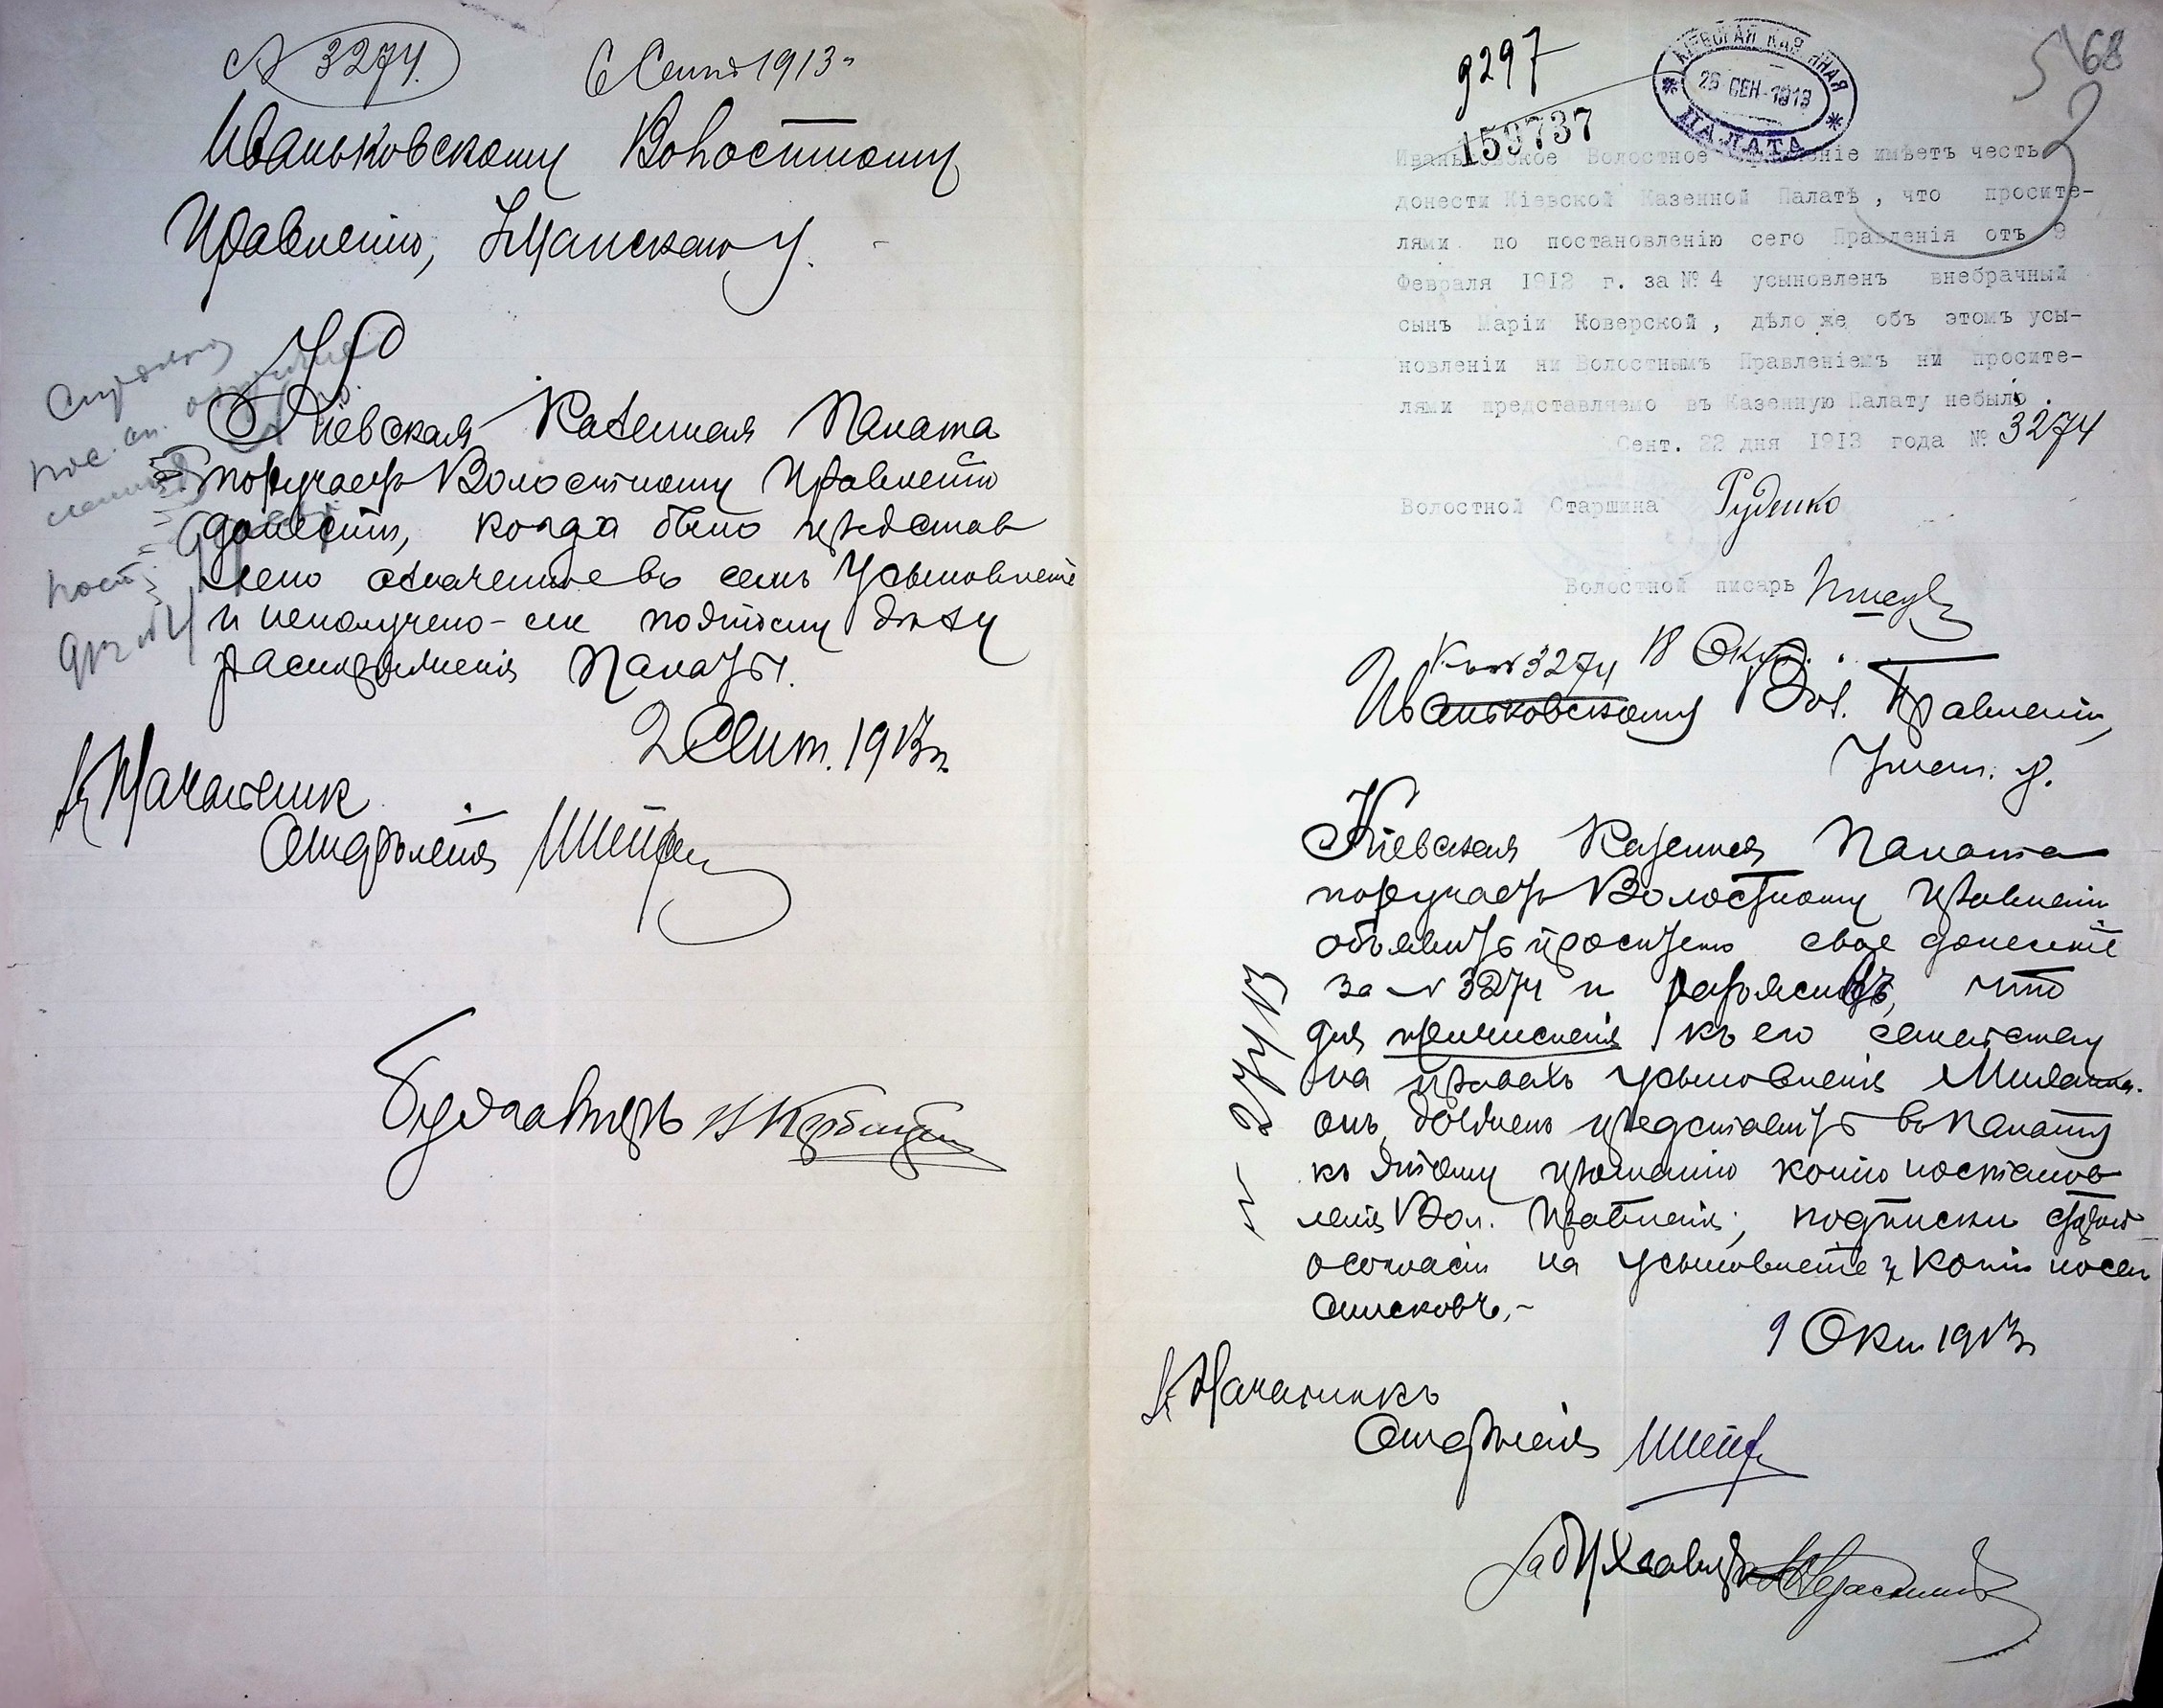 № 3274.
6 Сент 1913 г
Иваньковскому Волостному
Правлению, Уманскаго у.
Кіевская Казенная Палата
поручаетъ Волостному Правленію
донести, когда было представ
лено означенное въ семъ Усыновленіе
и неполучено-ли поэтому дѣлу
распоряженія Палаты.
2 Сент. 1913 г.
Начальник
Отдѣленія
Бухгалтеръ
9297
КІЕВСКАЯ КАЗЕННАЯ
26 СЕН 1913
ПАЛАТА
159737
68
Иваньковское Волостное Правленіе имѣетъ честь
донести Кіевской Казенной Палатѣ, что просите-
лями по постановленію сего Правленія отъ 9
Февраля 1912 г. за № 4 усыновленъ внебрачный
сынъ Маріи Коверской, дѣло же объ этомъ усы-
новленіи ни Волостнымъ Правленіемъ ни просите-
лями представляемо въ Казенную Палату небыло.
Сент. 22 дня 1913 года № 3274
Волостной Старшина Руденко
Волостной писарь
К № 3274 18 Окт.
Иваньковскому Вол. Правленію,
Уман. у.
Кіевская Казенная Палата
поручаетъ Волостному Правленію
объявить просителю свое донесеніе
за № 3274 и разъяснить, что
для причисленія къ его семейству
на правахъ усыновленія
онъ долженъ представить въ Палату
къ этому прошенію копію постанов
ленія Вол. Правленія, подписки
о согласіи на усыновленіе и копіи посем
списковъ.-
9 Окт 1913 г
Начальникъ
Отдѣленія
За Бухгалтера